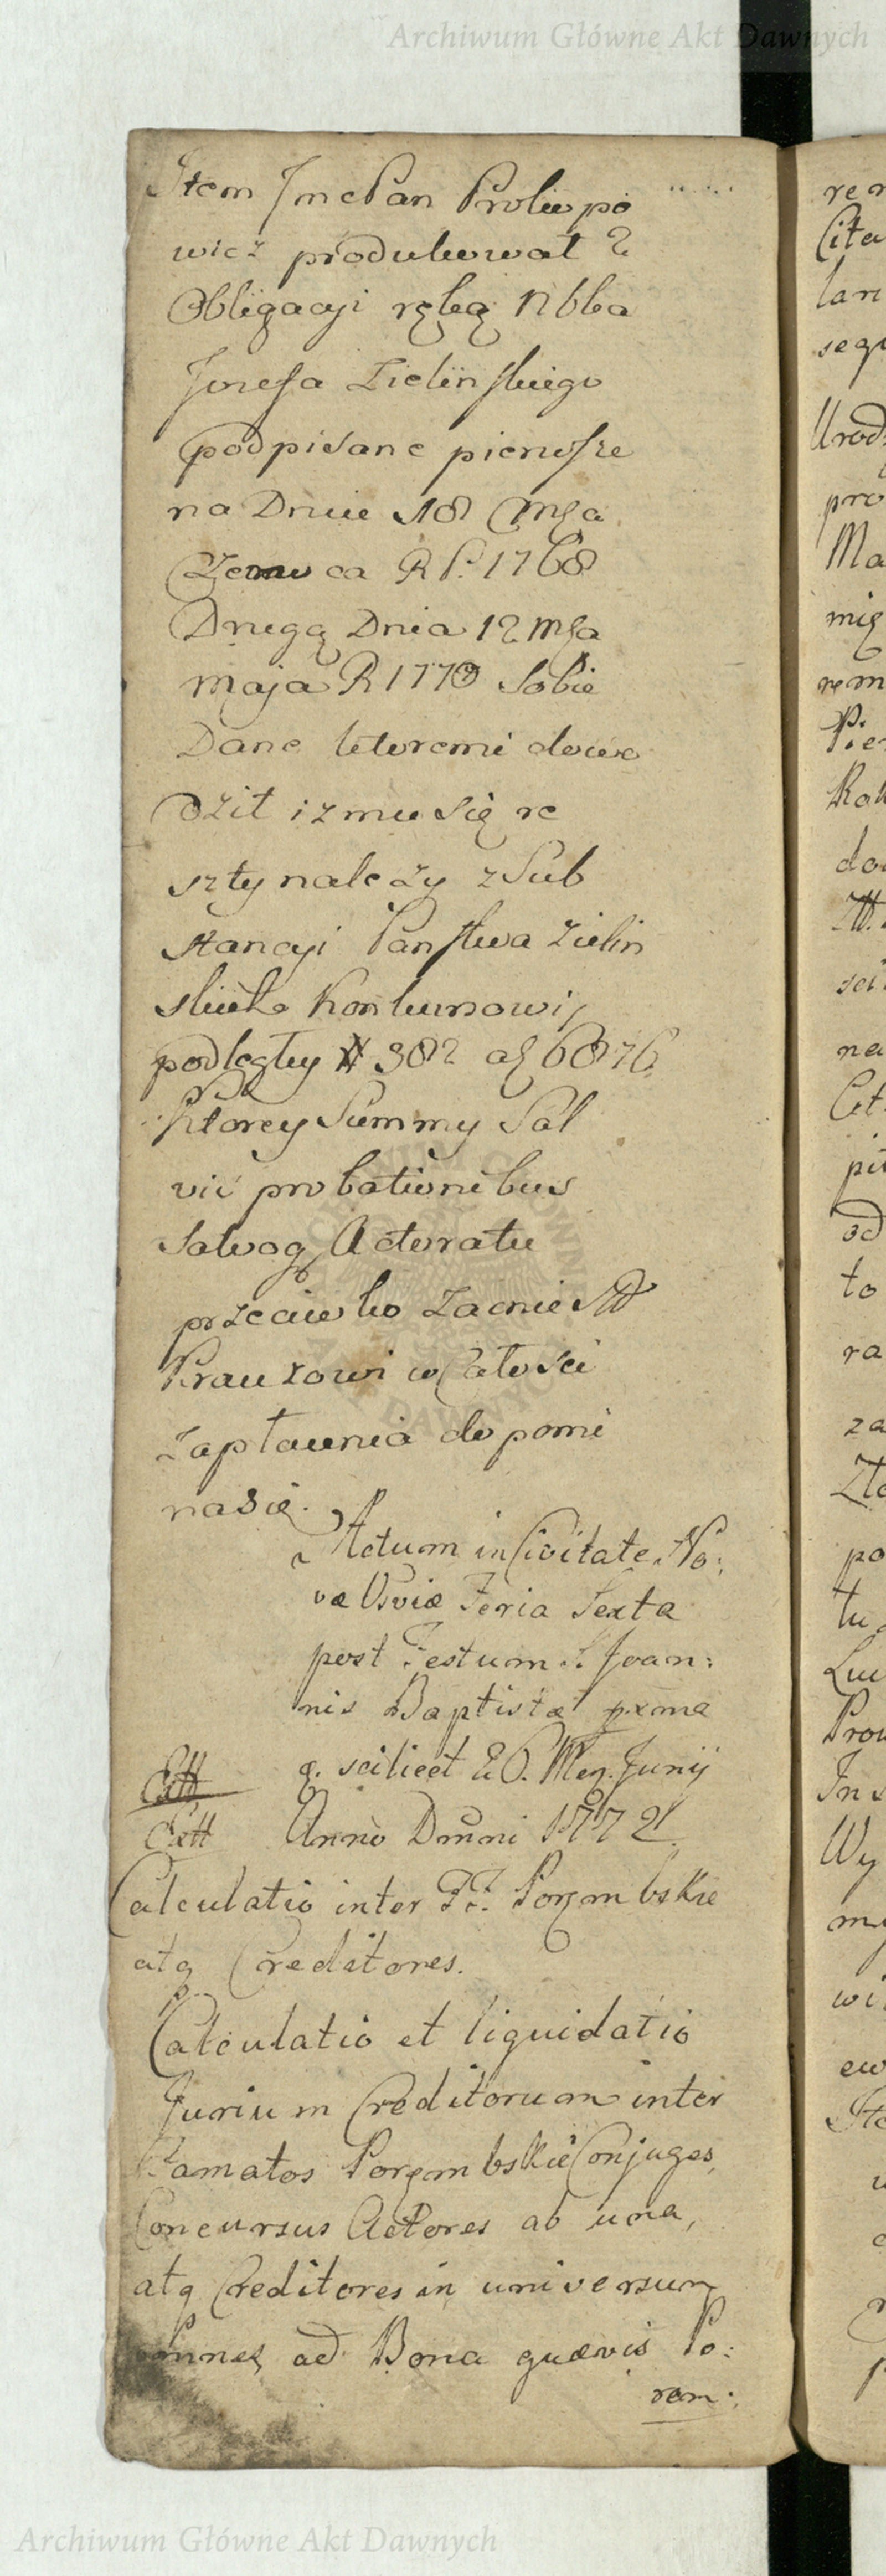 Archiwum Główne Akt Dawnych
Item Jmc Pan Prolipo
wicz produkował 2
Obligacyi ręką
Jozefa Zielinskiego
podpisane pierwsze
na Dniu 18 Msca
Czerwca RP. 1768
Drugą Dnia 12 Msca
Maja R 1770 sobie
Dane ktoremi dowo
dził iz mu się re
szty nalezy z Sub
stancyi Panstwa Zielin
skich Konkursowi
podległey # 382
Ktorey Summy Sal
vis probationibus
Salvoq Actoratu
przeciwko Zacnie
Krauzowi w Całosci
Zapłacenia dopomi
na się.
Actum in Civitate No:
væ Osviæ Feria Sexta
post Festum S. Joan:
nis Baptistæ pxma
q. scilicet 26. Men. Junij
Anno Dmni 1772
Calculatio inter FF. Porembskie
atq Creditores.
Calculatio et liquidatio
Jurium Creditorum inter
Famatos Porembskie Conjuges,
Concursus Actores ab una,
atq Creditores in universum
omnes ad Bona quævis Po:
rem:
re
Cita
lar
sequ
Urod
pro
Ma
mię
rem
Pier
Rok
do
na
pi
od
to
ra
za
Zło
po
tu
Prow
In
Wy
my
wi
ew
Ite
Archiwum Główne Akt Dawnych